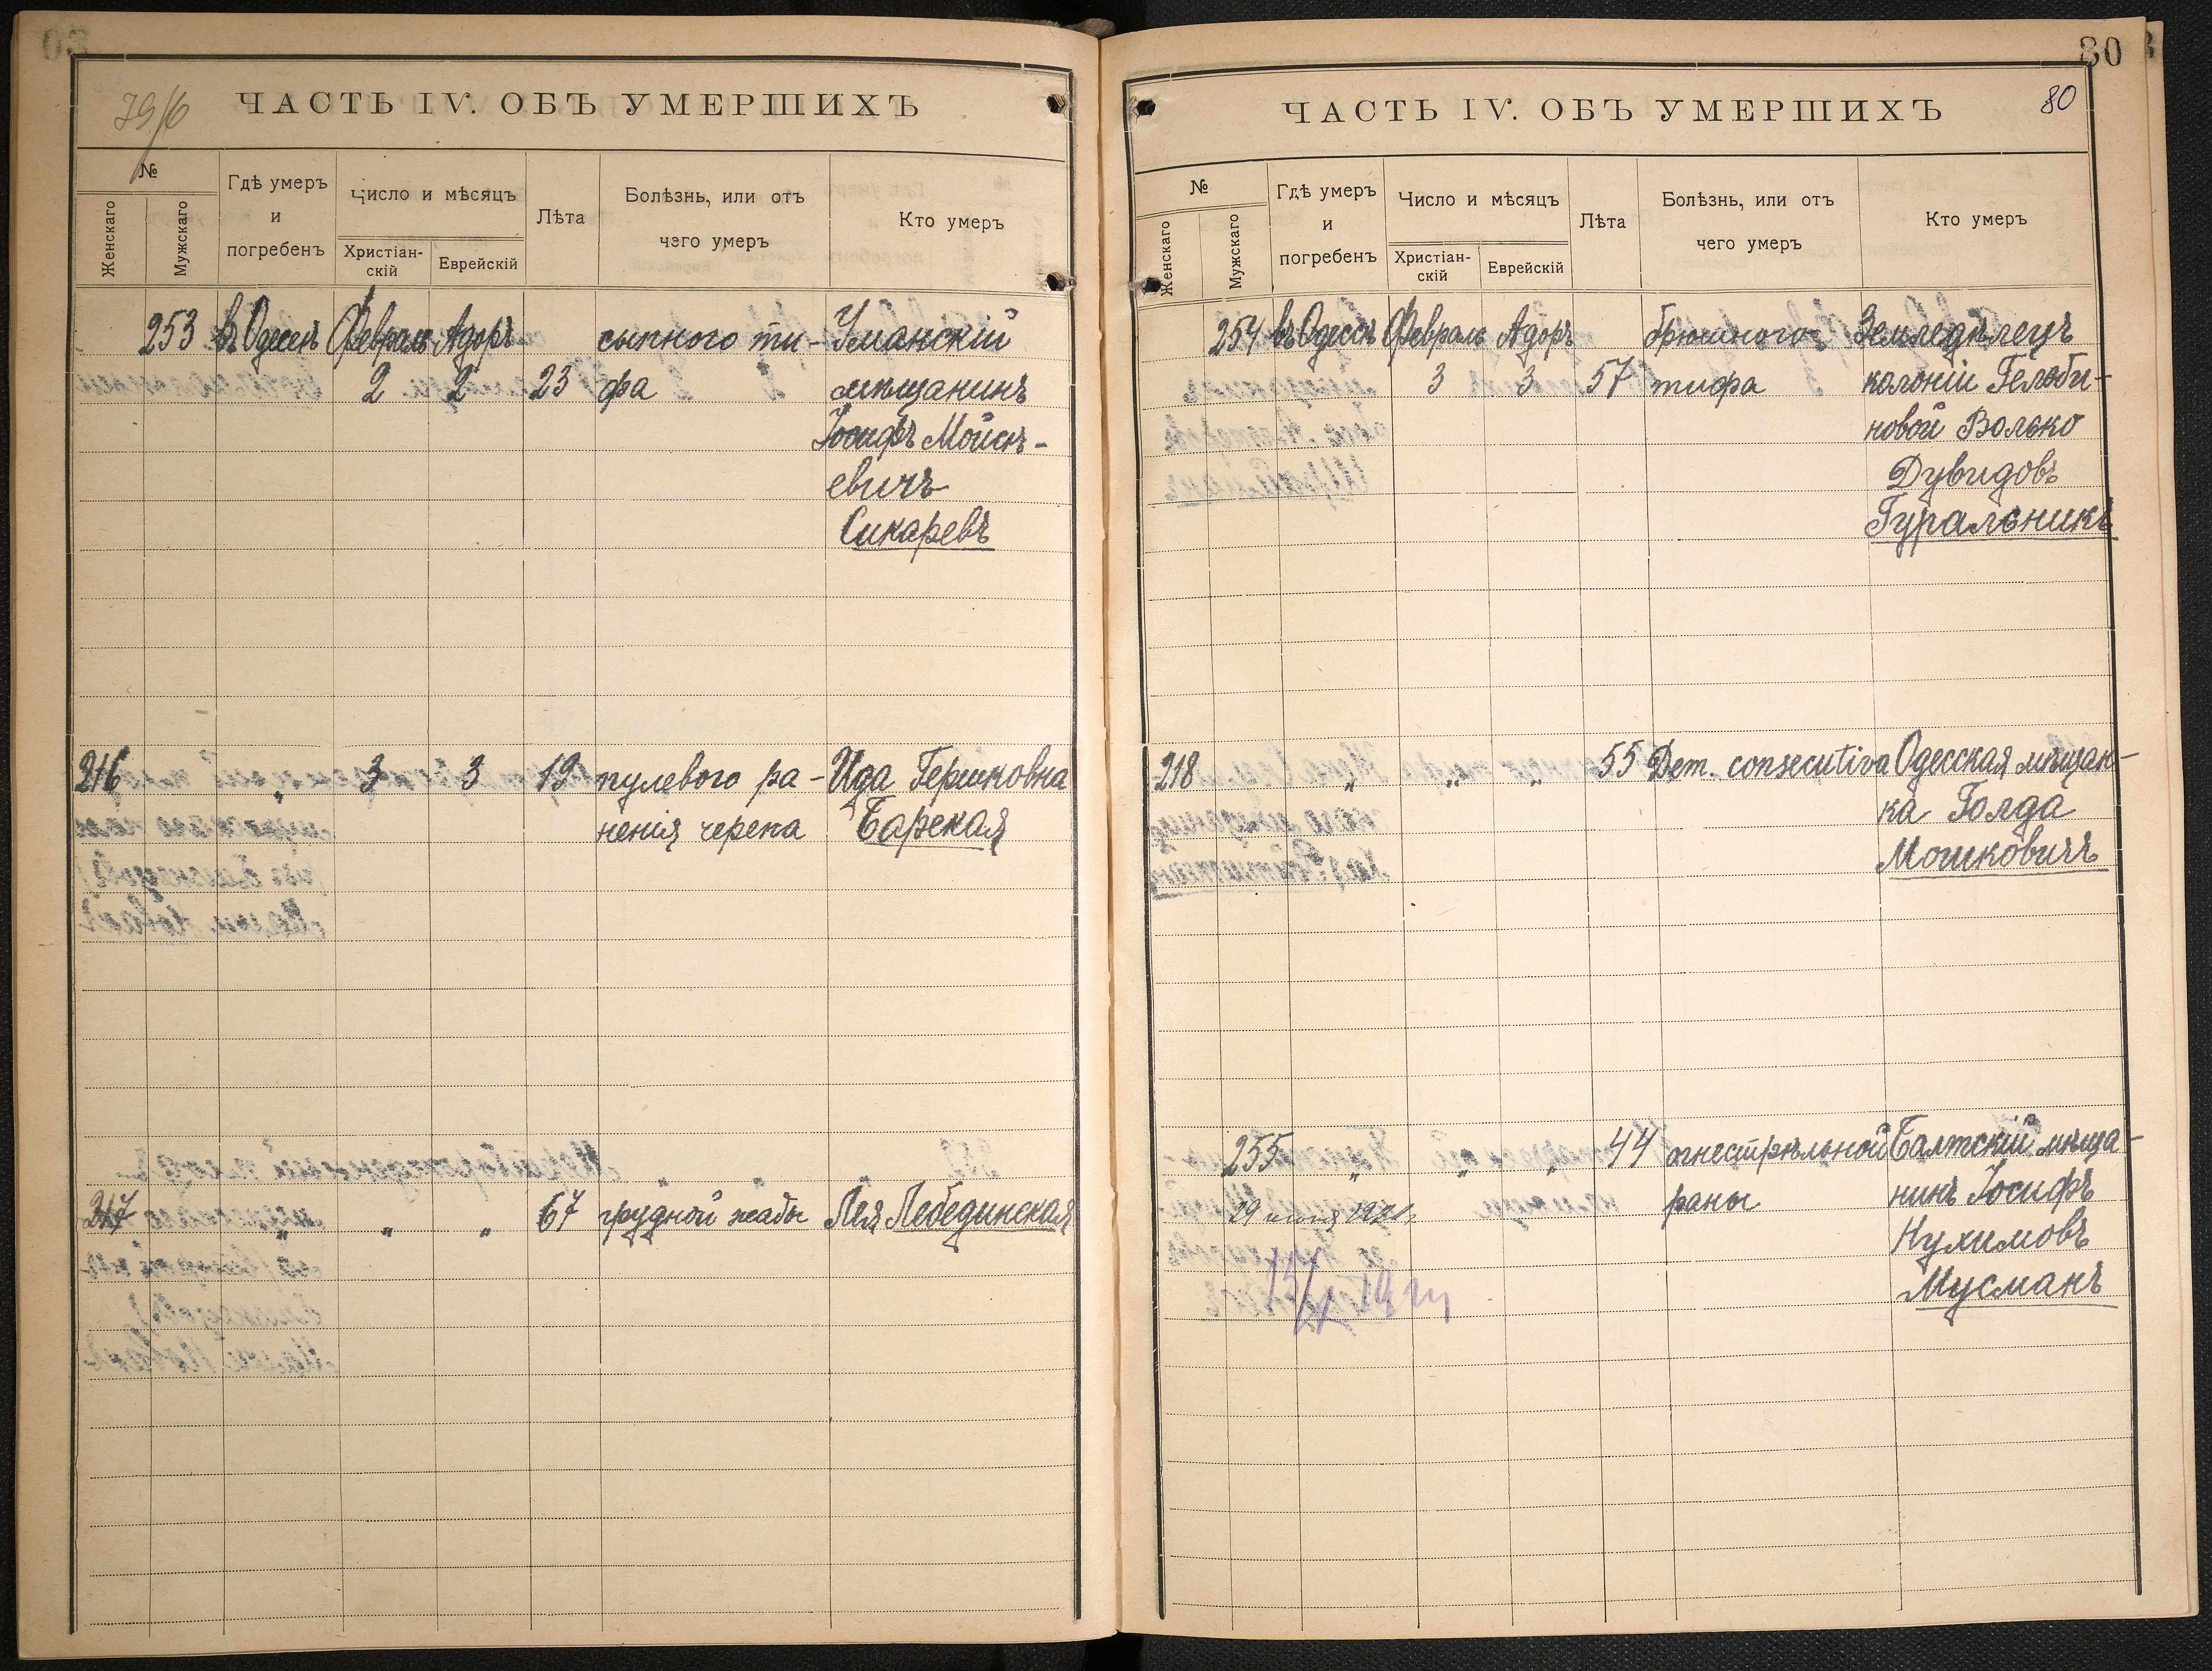 79/6
ЧАСТЬ IV. ОБЪ УМЕРШИХЪ
№
Женскаго
Мужскаго
Гдѣ умеръ
и
погребенъ
Число и мѣсяцъ
Христіан-
скій
Еврейскій
Лѣта
Болѣзнь, или отъ
чего умеръ
Кто умеръ
253 въ Одессѣ Февраль Адоръ сыпного ти- Уманскій
2 2 23 фа мѣщанинъ
Іосифъ Мойсѣ-
евичъ
Сикаревъ
216 „ 3 3 19 пулевого ра- Ида Гершковна
ненія черепа Барская
217 „ „ „ 67 грудной жабы Лея Лебединская
80
80
ЧАСТЬ IV. ОБЪ УМЕРШИХЪ
№
Женскаго
Мужскаго
Гдѣ умеръ
и
погребенъ
Число и мѣсяцъ
Христіан-
скій
Еврейскій
Лѣта
Болѣзнь, или отъ
чего умеръ
Кто умеръ
254 въ Одессѣ Февраль Адоръ брюшного Земледѣлецъ
3 3 57 тифа колоніи Гелоби-
новой Волько
Дувидовъ
Гуральникъ
218 „ „ „ 55 Dem. consecutiva Одесская мѣщан-
ка Голда
Мошковичъ
255 „ „ „ 44 огнестрѣльной Балтскій мѣща-
раны нинъ Іосифъ
29 июня 1921 Нухимовъ
Мусманъ